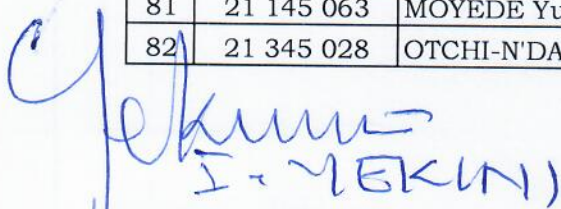 81 21 145 063 MOYEDE Yu
82 21 345 028 OTCHI-N'DA
I. YEKINI